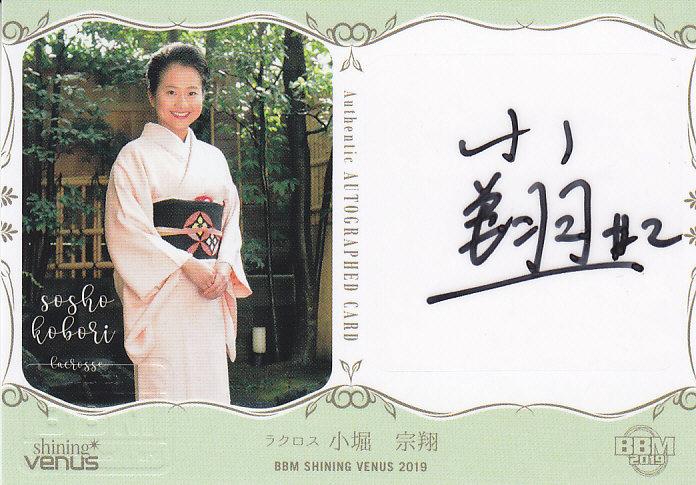 sosho
kobori
Lacrosse
Authentic AUTOGRAPHED CARD
小
翔 #2
shining
venus
ラクロス 小堀 宗翔
BBM SHINING VENUS 2019
BBM
2019